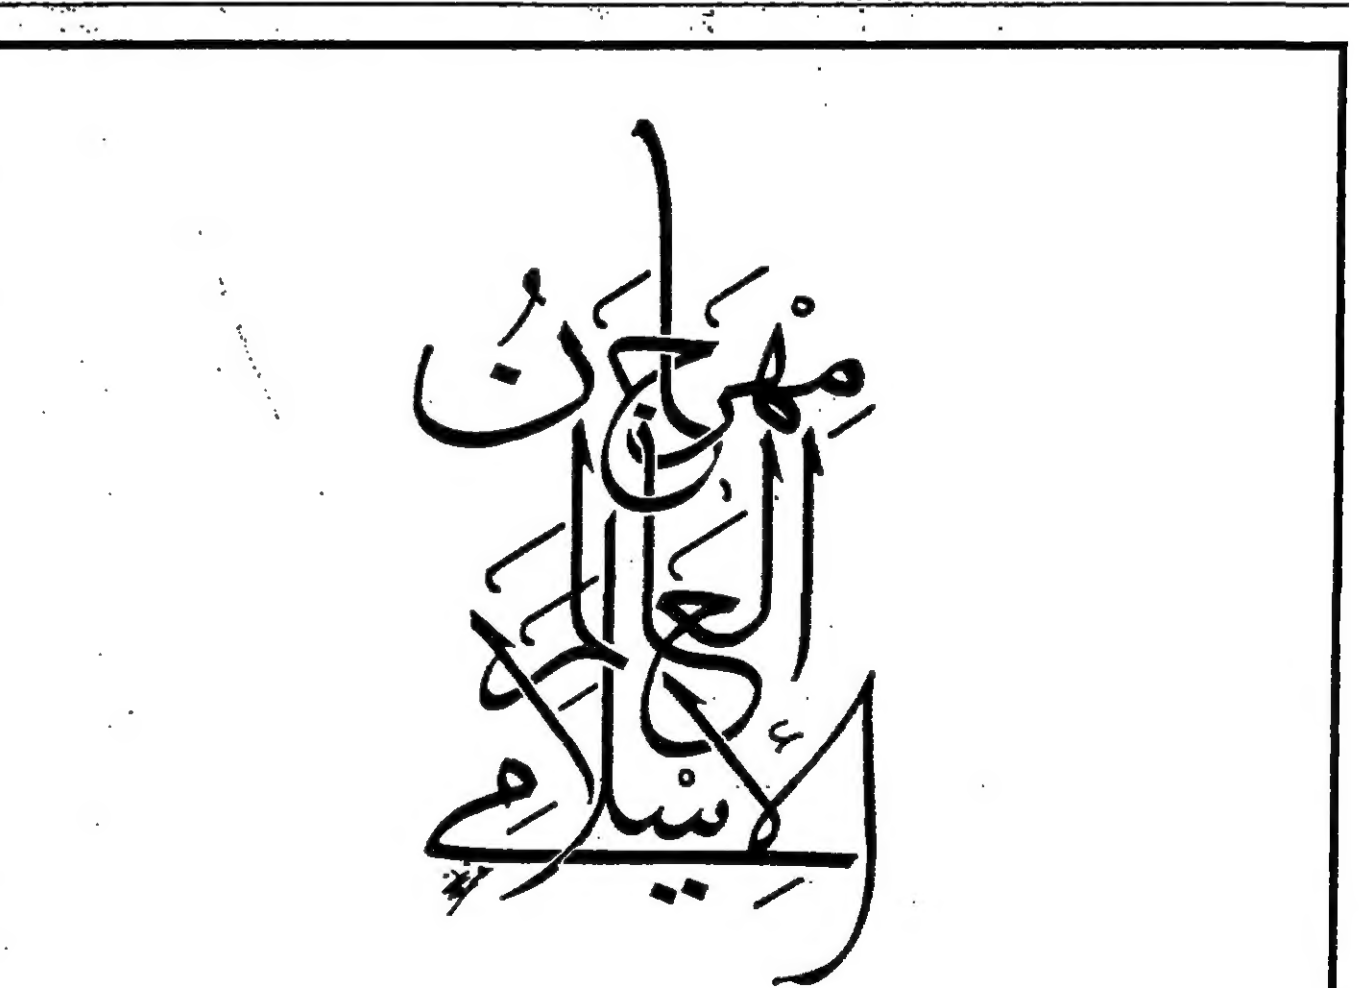 مِهْرَجَانُ
العَالَمِ
الإِسْلَامِي